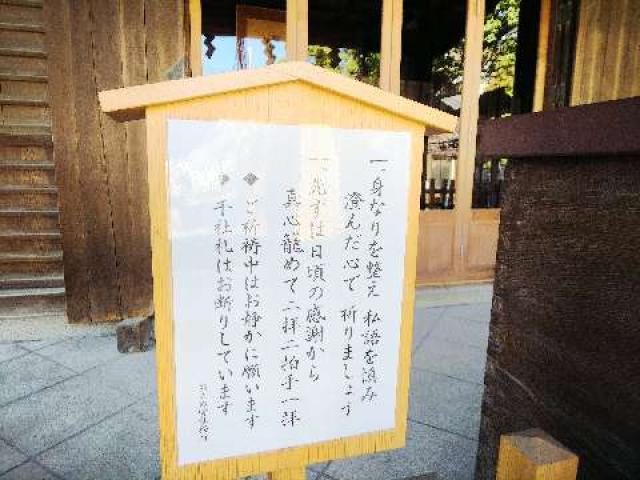 一、身なりを整え 私語を慎み
澄んだ心で 祈りましょう
一、先ずは日頃の感謝から
真心籠めて二拝二拍手一拝
◆ご祈祷中はお静かに願います
◆千社札はお断りしています